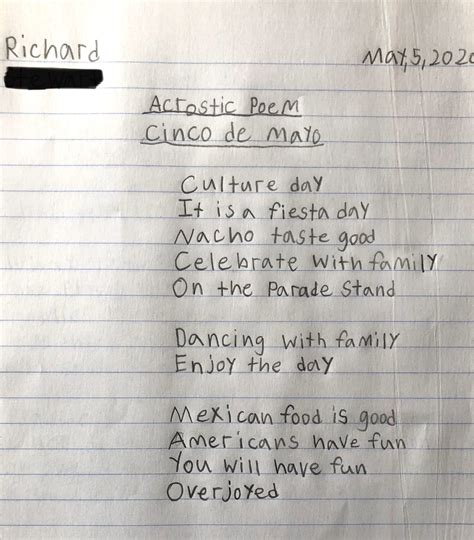 Richard
May,5,2020
Acrostic Poem
Cinco de Mayo
Culture day
It is a fiesta day
Nacho taste good
Celebrate with family
On the Parade Stand
Dancing with family
Enjoy the day
Mexican food is good
Americans have fun
You will have fun
Overjoyed